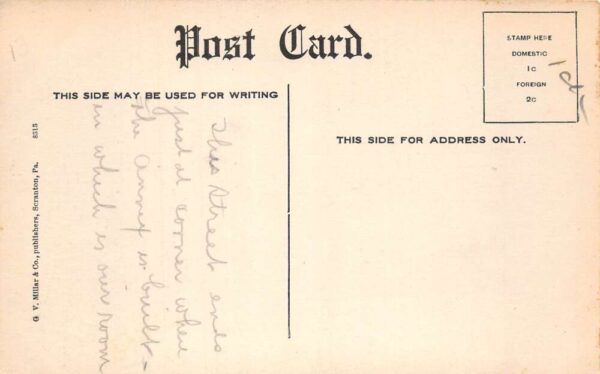 Post Card.
THIS SIDE MAY BE USED FOR WRITING
THIS SIDE FOR ADDRESS ONLY.
STAMP HERE
DOMESTIC
1c
FOREIGN
2c
This street ends
just at corner where
the annex is built -
in which is our room
G. V. Millar & Co., publishers, Scranton, Pa.
8515